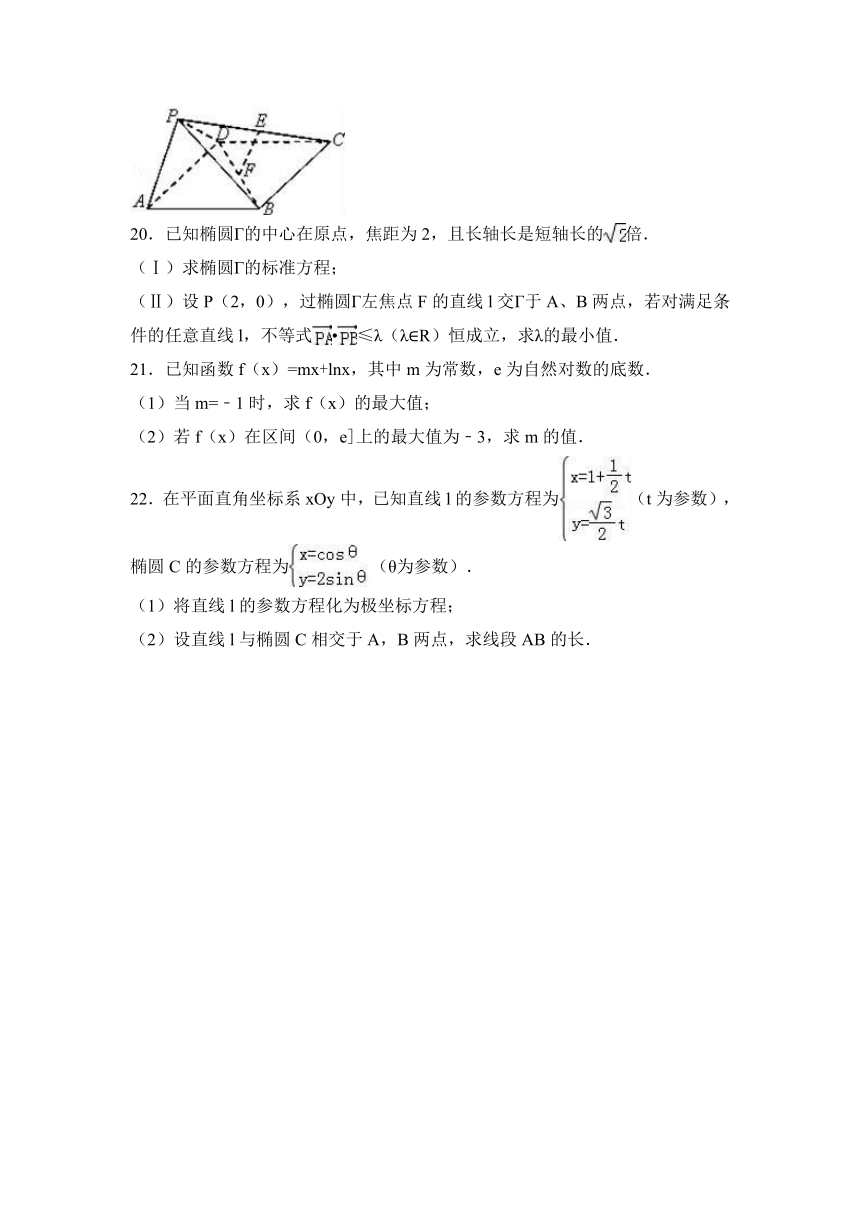 P
E
D
C
F
A
B
20．已知椭圆Γ的中心在原点，焦距为2，且长轴长是短轴长的√2倍．
（Ⅰ）求椭圆Γ的标准方程；
（Ⅱ）设P（2，0），过椭圆Γ左焦点F的直线l交Γ于A、B两点，若对满足条
件的任意直线l，不等式PA•PB≤λ（λ∈R）恒成立，求λ的最小值．
21．已知函数f（x）=mx+lnx，其中m为常数，e为自然对数的底数．
（1）当m=﹣1时，求f（x）的最大值；
（2）若f（x）在区间（0，e]上的最大值为﹣3，求m的值．
22．在平面直角坐标系xOy中，已知直线l的参数方程为{x=1+1/2 t y=√3/2 t（t为参数），
椭圆C的参数方程为{x=cosθ y=2sinθ（θ为参数）．
（1）将直线l的参数方程化为极坐标方程；
（2）设直线l与椭圆C相交于A，B两点，求线段AB的长．